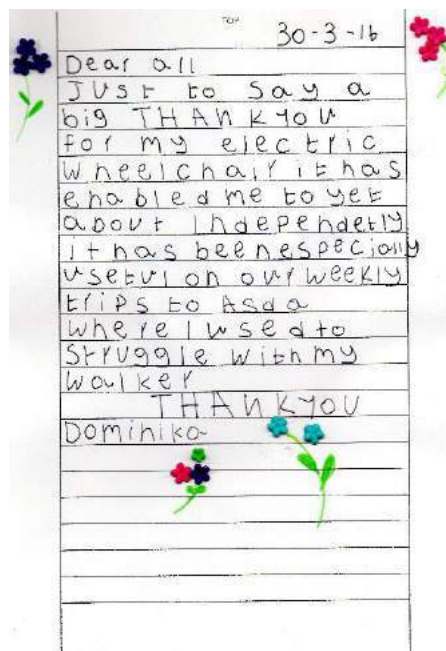 TOP
30-3-16
Dear all
Just to say a
big THANKYOU
for my electric
wheelchair it has
enabled me to get
about independetly
it has been especially
useful on our weekly
trips to Asda
where I used to
struggle with my
walker
THANKYOU
Dominika